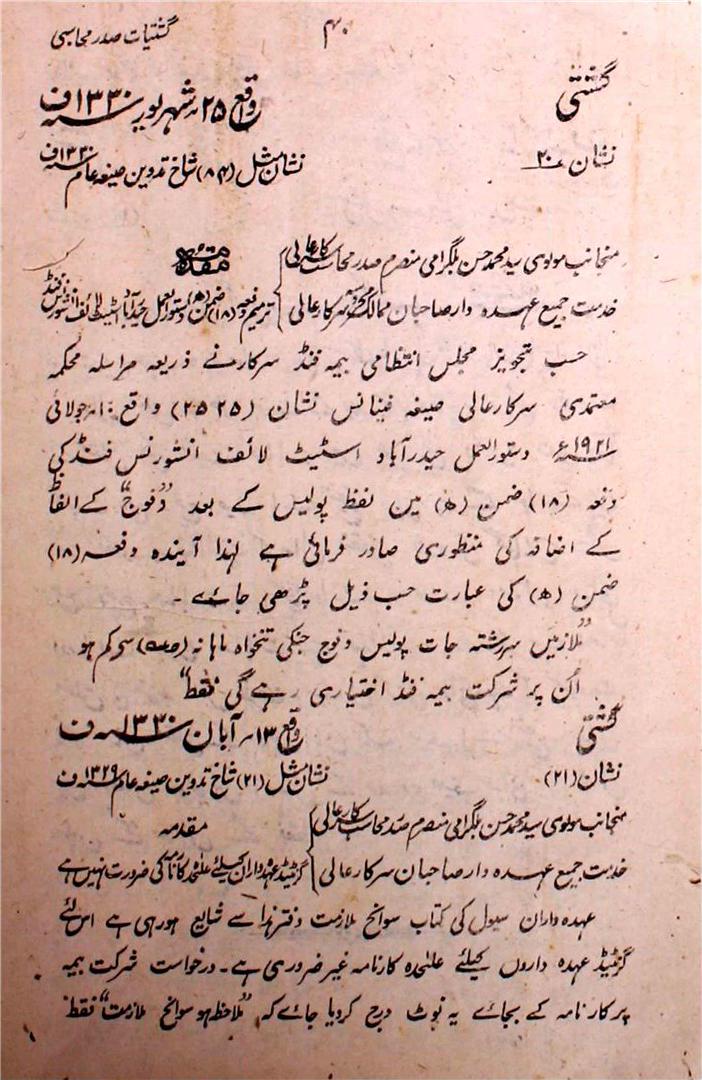 گشتیات صدر محاسبی
۴۰
گشتی
واقع ۲۵؍ شہریور سنہ ۱۳۳۰ف
نشان ۲۰
نشان مثل (۸۴) شاخ تدوین صیغہ عام سنہ ۱۳۳۰ف
منجانب مولوی سید محمد حسن بلگرامی منصرم صدر محاسب سرکار عالی
مقدمہ
خدمت جمیع عہدہ دار صاحبان ممالک محروسہ سرکار عالی
ترمیم دفعہ (۱۸) ضمن (ھ) دستور العمل حیدرآباد اسٹیٹ لائف انشورنس فنڈ
حسب تجویز مجلس انتظامی بیمہ فنڈ سرکار نے ذریعہ مراسلہ محکمہ
معتمدی سرکار عالی صیغہ فینانس نشان (۲۵۲۵) واقع ۱۰؍ جولائی
سنہ ۱۹۲۱ء دستور العمل حیدرآباد اسٹیٹ لائف انشورنس فنڈ کی
دفعہ (۱۸) ضمن (ھ) میں لفظ پولیس کے بعد ”وفوج“ کے الفاظ
کے اضافہ کی منظوری صادر فرمائی ہے لہذا آیندہ دفعہ (۱۸)
ضمن (ھ) کی عبارت حسب ذیل پڑھی جائے ۔
”ملازمین سررشتہ جات پولیس و فوج جنکی تنخواہ ماہانہ سے کم ہو
اُن پر شرکت بیمہ فنڈ اختیاری رہے گی فقط“
گشتی
واقع ۱۳؍ آبان سنہ ۱۳۳۰ف
نشان (۲۱)
نشان مثل (۲۱) شاخ تدوین صیغہ عام سنہ ۱۳۲۹ف
منجانب مولوی سید محمد حسن بلگرامی منصرم صدر محاسب سرکار عالی
مقدمہ
خدمت جمیع عہدہ دار صاحبان سرکار عالی
گزیٹیڈ عہدہ داران کیلئے علٰحدہ کارنامہ کی ضرورت نہیں ہے
عہدہ داران سیول کی کتاب سوانح ملازمت دفتر ہذا سے شایع ہو رہی ہے اس لئے
گزیٹیڈ عہدہ داروں کیلئے علٰحدہ کارنامہ غیر ضروری ہے ۔ درخواست شرکت بیمہ
پر کارنامہ کے بجائے یہ نوٹ درج کردیا جائے کہ ”ملاحظہ ہو سوانح ملازمت“ فقط